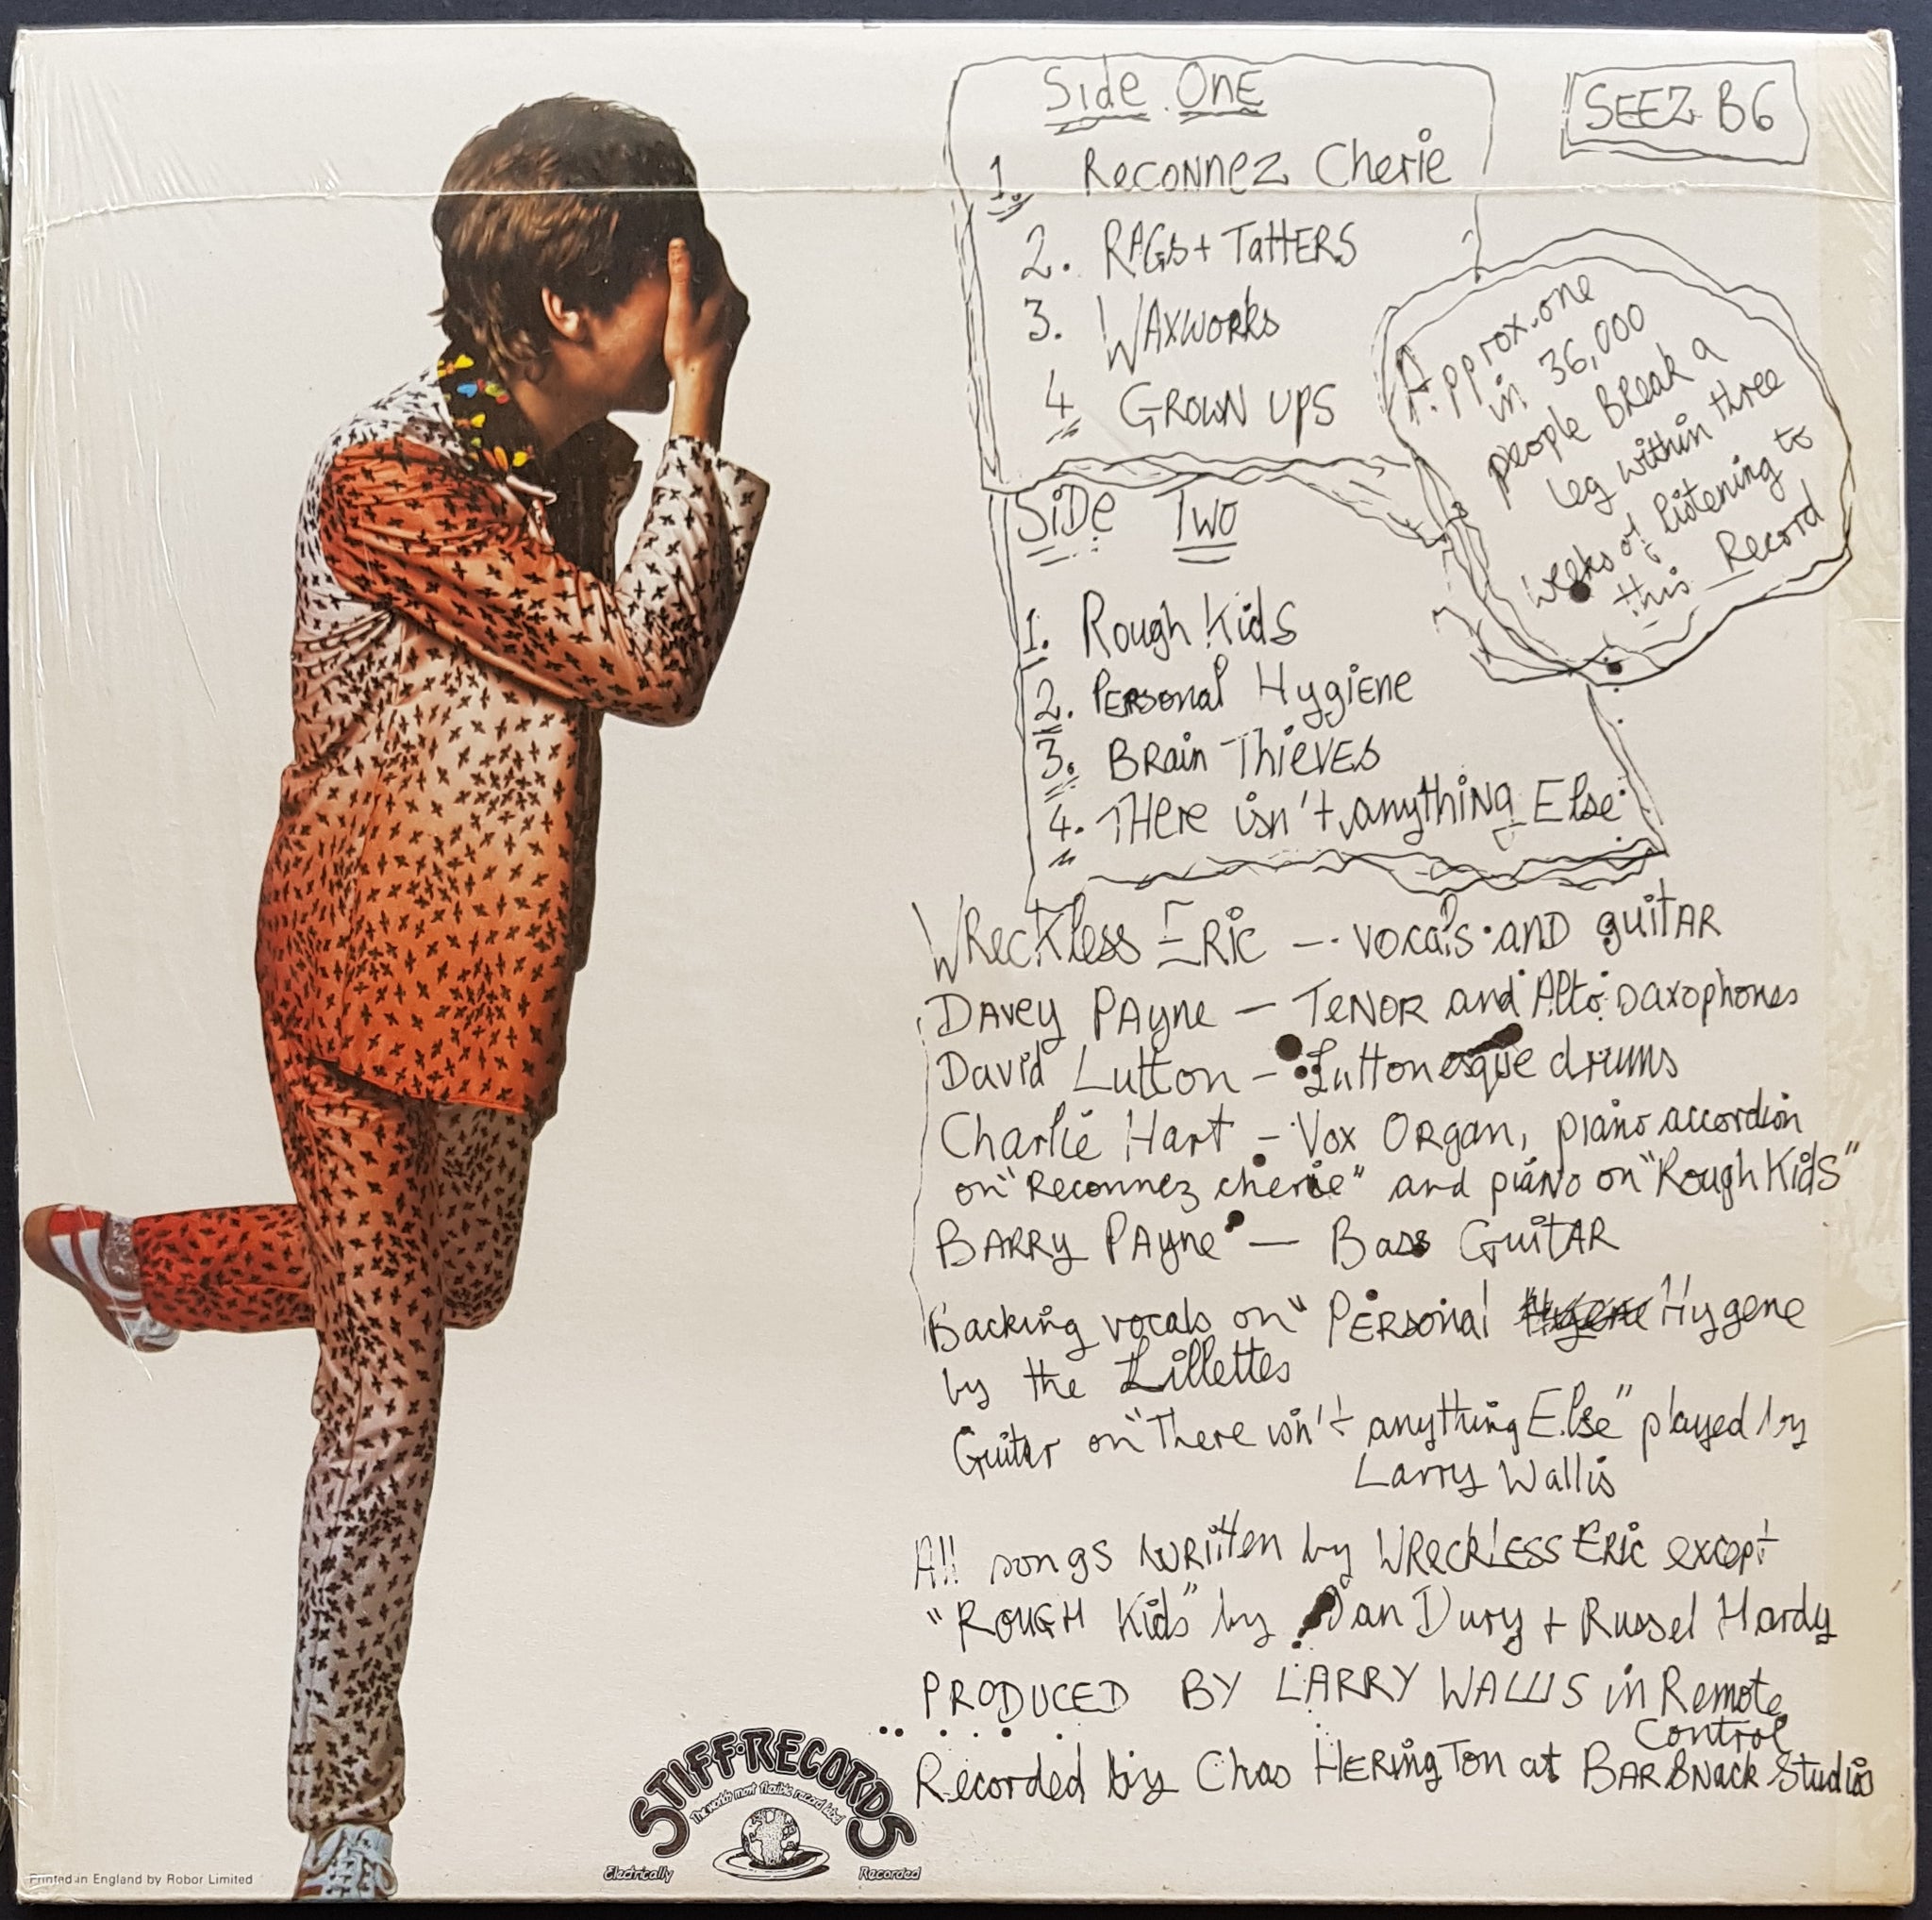 Side One
SEEZ B6
1. Reconnez Cherie
2. Rags + Tatters
3. Waxworks
4 Grown ups
Approx. one
in 36,000
people Break a
leg within three
weeks of listening to
this Record
Side Two
1. Rough Kids
2. Personal Hygiene
3. Brain Thieves
4. There isn't anything Else
Wreckless Eric — vocals and guitar
Davey Payne — Tenor and Alto saxophones
David Lutton — Luttonesque drums
Charlie Hart — Vox Organ, piano accordion
on "Reconnez cherie" and piano on "Rough Kids"
Barry Payne — Bass Guitar
Backing vocals on "Personal Hygene
by the Lillettes
Guitar on "There isn't anything Else" played by
Larry Wallis
All songs written by Wreckless Eric except
"Rough Kids" by Ian Dury + Russel Hardy
PRODUCED BY LARRY WALLIS in Remote
Control
Recorded by Chas Herington at Barbnack Studios
STIFF-RECORDS
The worlds most flexible record label
Electrically Recorded
Printed in England by Robor Limited